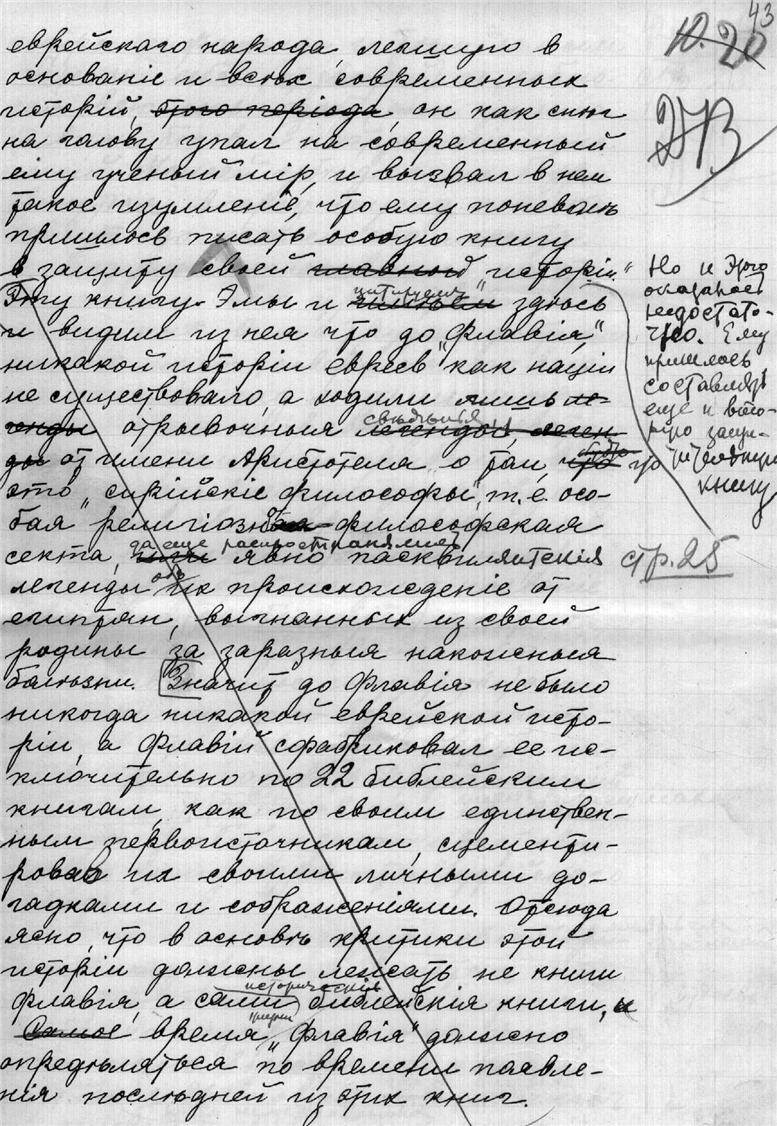 43
10. 20
273
еврейскаго народа, легшую в
основаніе и всѣх современных
исторій, этого періода, он как снѣг
на голову упал на современный
ему ученый мір, и вызвал в нем
такое изумленіе, что ему поневолѣ
пришлось писать особую книгу
в защиту своей главной исторіи."
Эту книгу мы и цитируем здѣсь
и видим из нея что до "Флавія"
никакой исторіи евреев "как націи
не существовало, а ходили лишь ле-
генды отрывочныя свѣдѣнія легенды, леген-
ды от имени Аристотеля о том, что будто
это "сирійскіе философы", т. е. осо-
бая религіозная философская
секта, да еще распространялись явно пасквилянтскія
легенды об их происхожденіе от
египтян, выгнанных из своей
родины за заразныя накожныя
болѣзни. Значит до Флавія не было
никогда никакой еврейской исто-
ріи, а Флавій сфабриковал ее ис-
ключительно по 22 библейским
книгам, как по своим единствен-
ным первоисточникам, сцементи-
ровав их своими личными до-
гадками и соображеніями. Отсюда
ясно, что в основѣ критики этой
исторіи должны лежать не книги
Флавія, а сами историческія библейскія книги, и
самое время "Флавія" должно
опредѣляться по времени появле-
нія послѣдней из этих книг.
Но и этого
оказалось
недостато-
чно. Ему
пришлось
составлять
еще и вто-
рую защи-
тительную
книгу
стр. 25